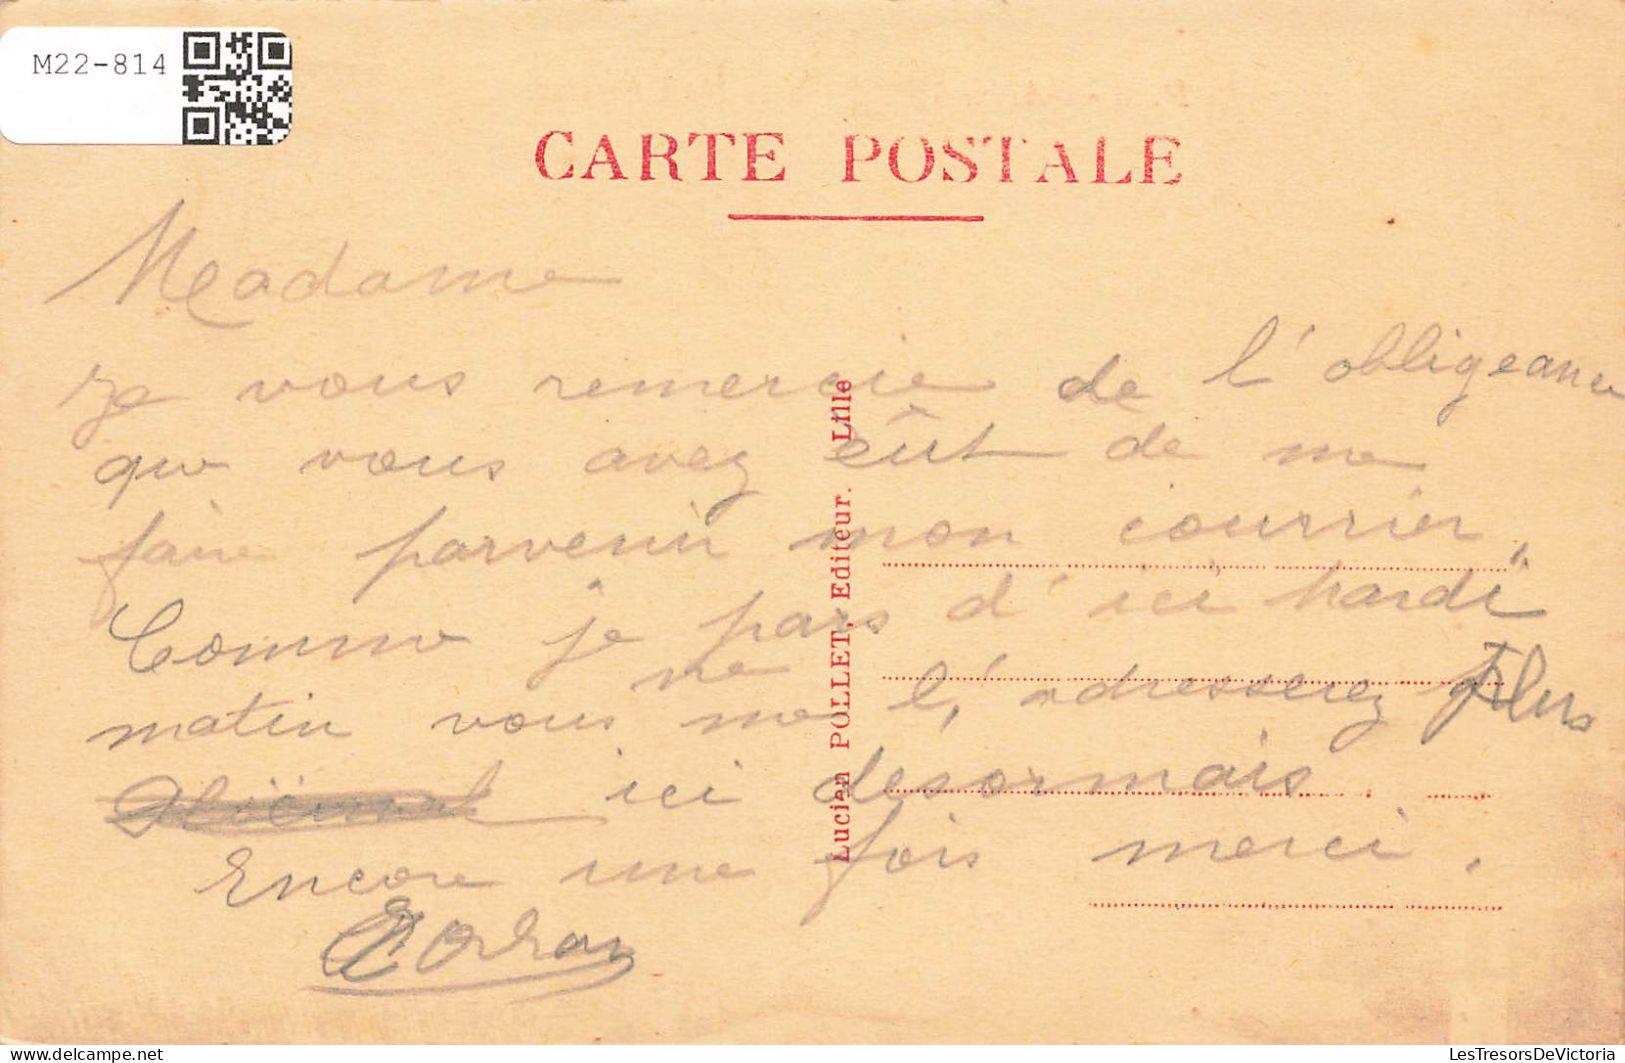 M22-814
CARTE POSTALE
Madame
Je vous remercie de l'obligeance
que vous avez eût de me
faire parvenir mon courrier,
Comme je pars d'ici mardi
matin vous ne me l'adresserez plus
ici desormais
Encore une fois merci.
Lucien POLLET, Editeur. Lille
delcampe.net
LesTresorsDeVictoria